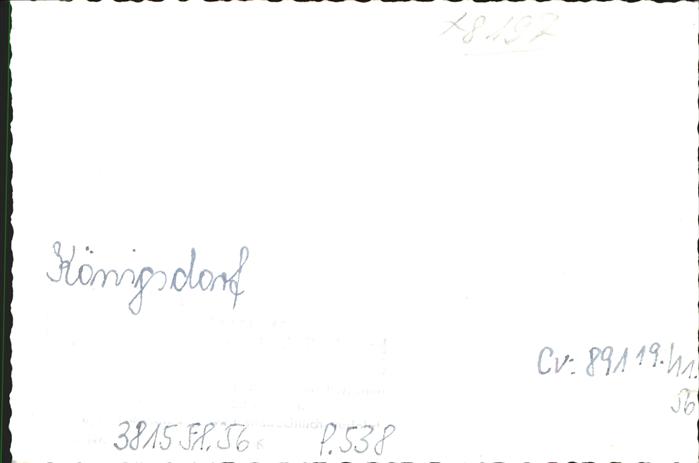 x8.197
Königsdorf
Cv: 891 19.11.
56
3815 P.538